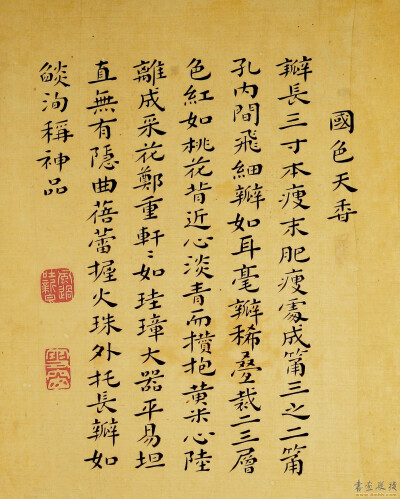 國色天香
瓣長三寸本瘦末肥瘦處成筩三之二筩
孔內間飛細瓣如耳毫瓣稀疊裁二三層
色紅如桃花背近心淡青而攢抱黃米心陸
離成采花鄭重軒〻如珪璋大器平易坦
直無有隱曲蓓蕾握火珠外托長瓣如
燄洵稱神品